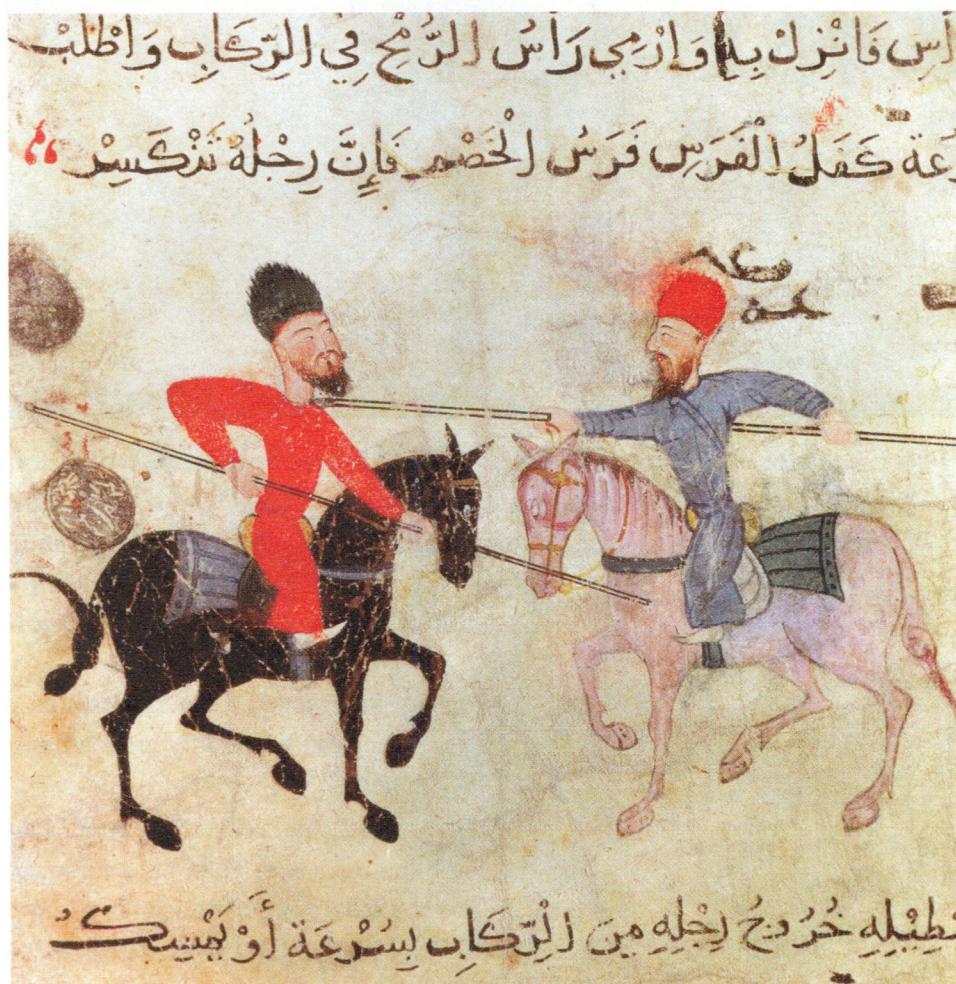 اس فَانْزِلْ بِهِ وَارْمِي رَاسُ الرُّمْحِ فِي الرِّكَابِ وَاطْلُبْ
عة كَفَلُ الْفَرَسِ فَرَسُ الْخَصْمِ فَإِنَّ رِجْلَهُ تَنْكَسِرْ
خُرُوجُ رِجْلِهِ مِنَ الرِّكَابِ بِسُرْعَة أَوْ